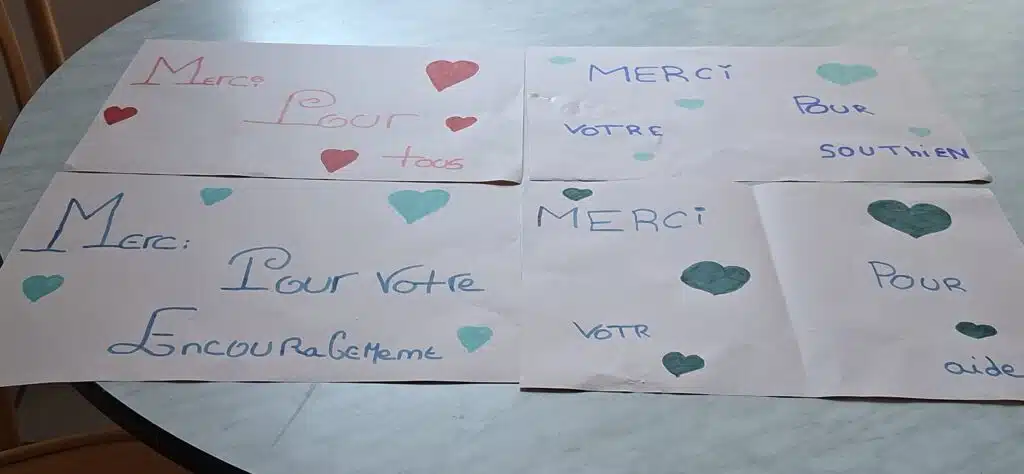 Merci
Pour
tous
MERCi
POUR
VOTRE
SOUTHiEN
Merci
Pour Votre
Encouragement
MERCi
POUR
VOTR
aide